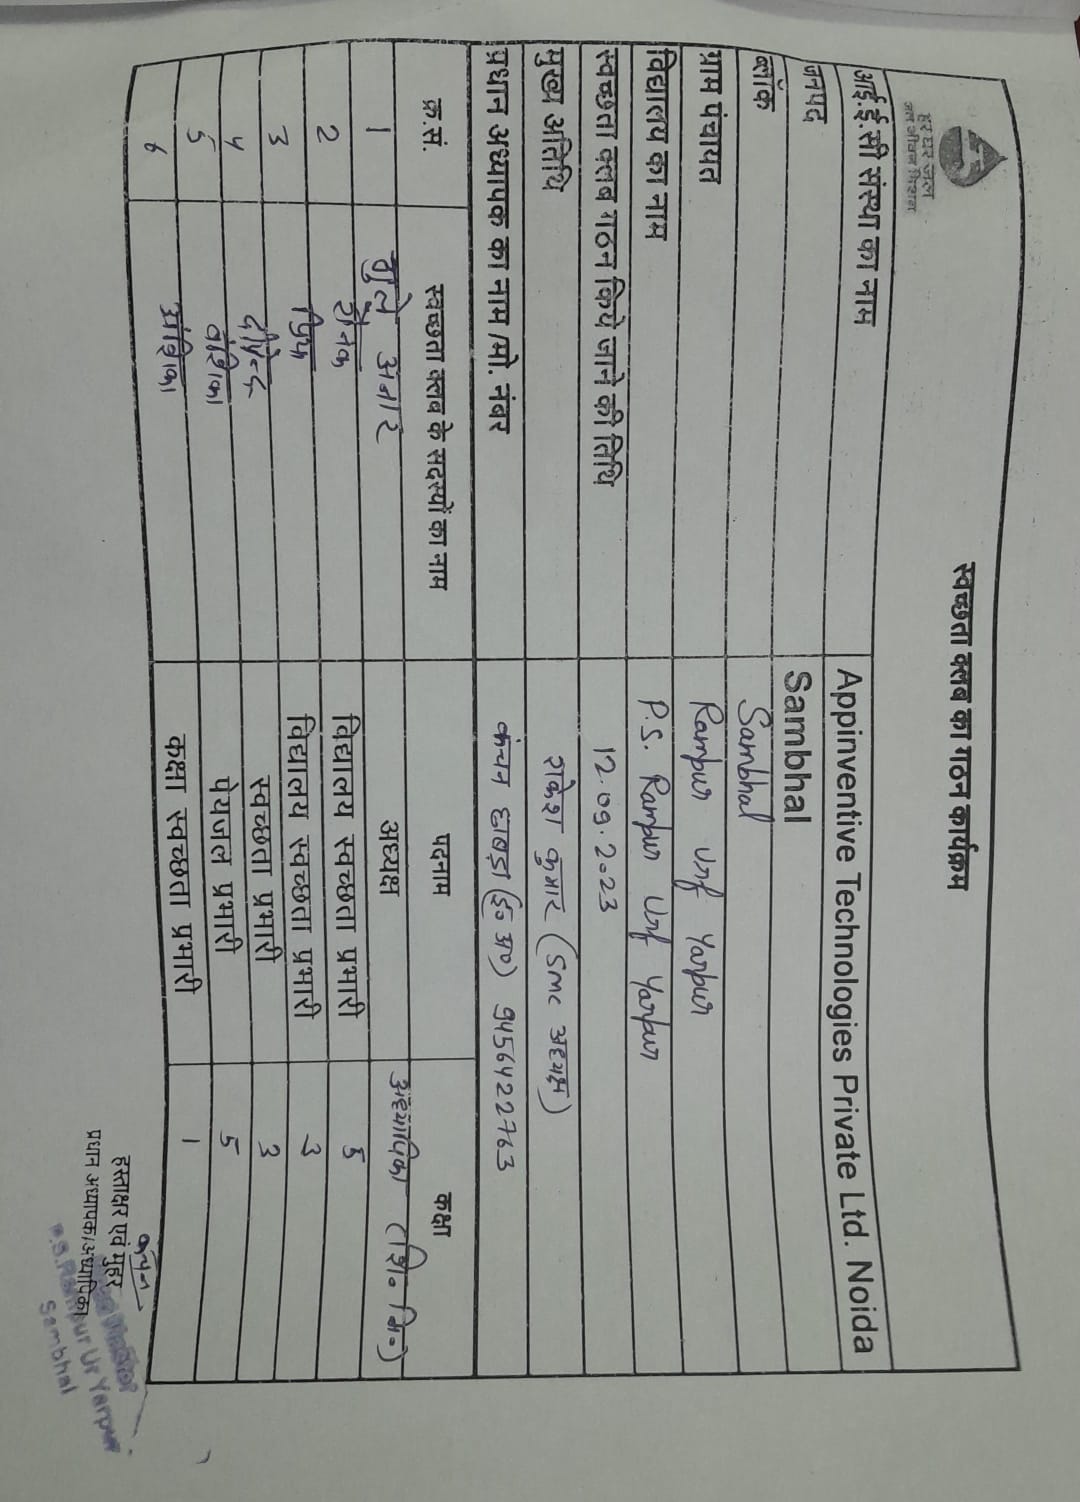 हर घर जल
जल जीवन मिशन
स्वच्छता क्लब का गठन कार्यक्रम
आई.ई.सी संस्था का नाम Appinventive Technologies Private Ltd. Noida
जनपद Sambhal
ब्लॉक Sambhal
ग्राम पंचायत Rampur urf Yarpur
विद्यालय का नाम P.S. Rampur Urf Yarpur
स्वच्छता क्लब गठन किये जाने की तिथि 12.09.2023
मुख्य अतिथि राकेश कुमार (SMC अध्यक्ष)
प्रधान अध्यापक का नाम/मो. नंबर कंचन छाबड़ा (इ० अ०) 9456422763
क्र.सं. स्वच्छता क्लब के सदस्यों का नाम पदनाम कक्षा
1 गुले अनार अध्यक्ष अध्यापिका (शि० मि०)
2 रौनक विद्यालय स्वच्छता प्रभारी 5
3 विद्यालय स्वच्छता प्रभारी 3
4 स्वच्छता प्रभारी 3
5 वंशिका पेयजल प्रभारी 5
6 अंशिका कक्षा स्वच्छता प्रभारी 1
कंचन
हस्ताक्षर एवं मुहर
प्रधान अध्यापक/अध्यापिका
P.S. Rampur Urf Yarpur
Sambhal